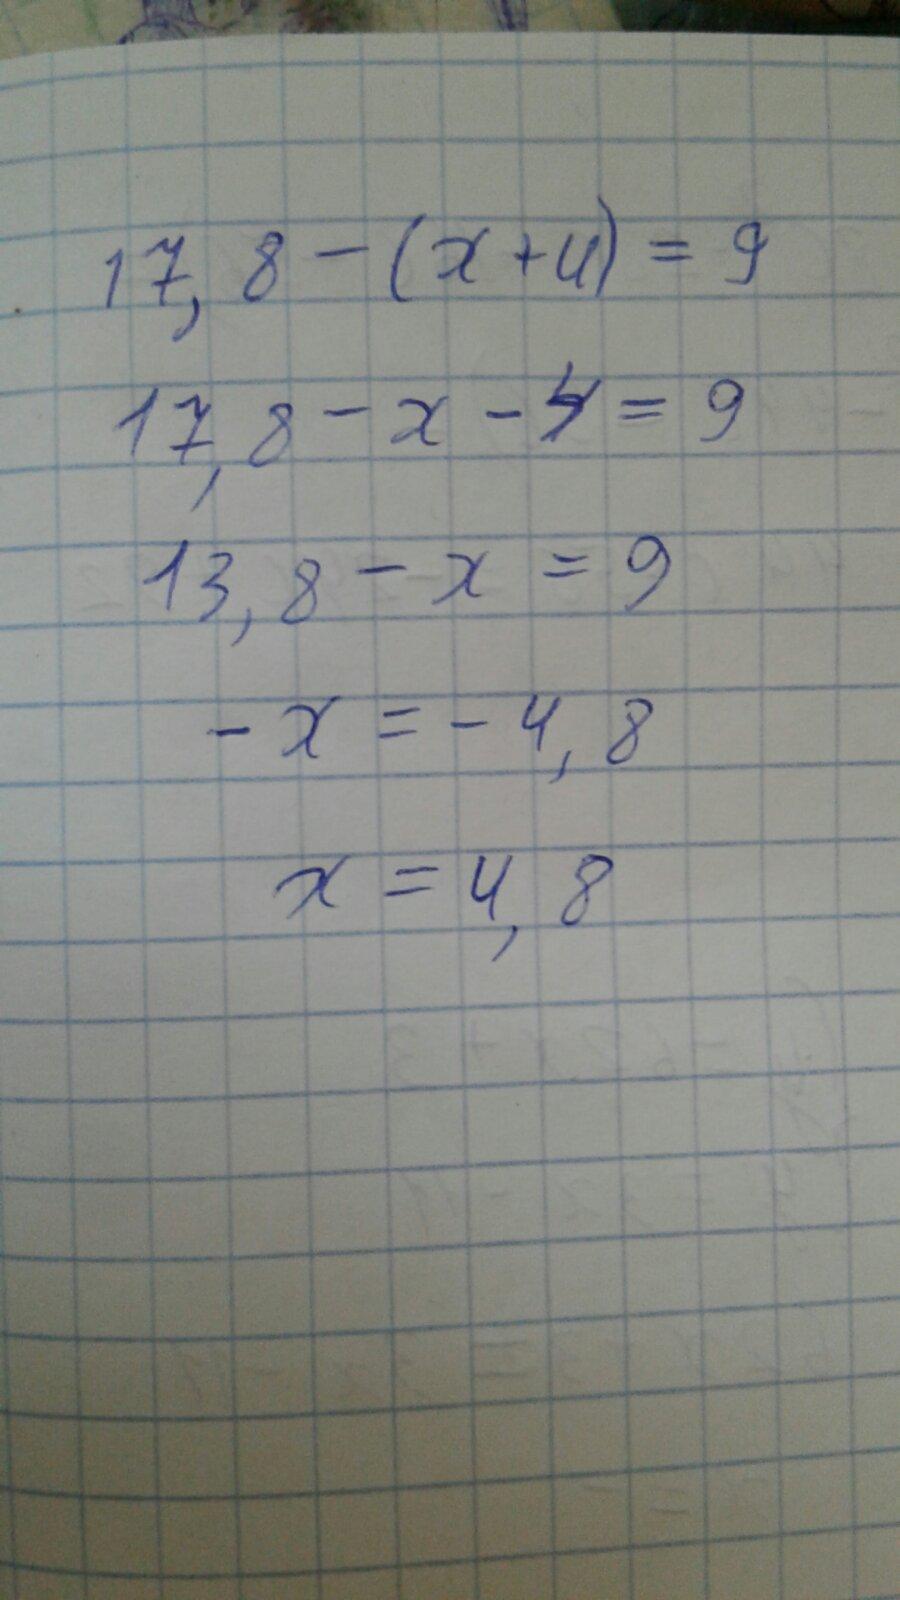 17,8-(x+4)=9
17,8-x-4=9
13,8-x=9
-x=-4,8
x=4,8